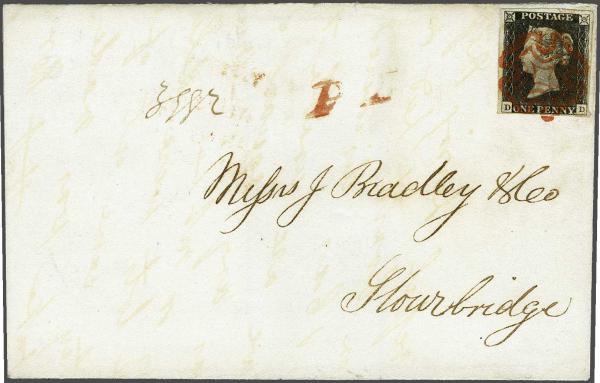 POSTAGE
D ONE PENNY D
Messrs J Bradley & Co
Stourbridge